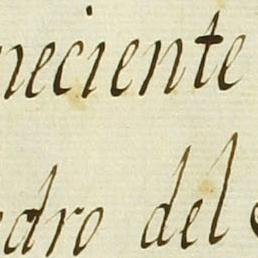 neciente
edro del